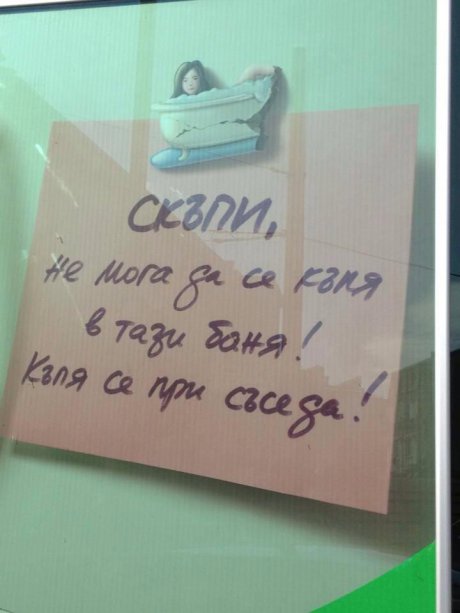 СКЪПИ,
не мога да се къпя
в тази баня!
Къпя се при съседа!